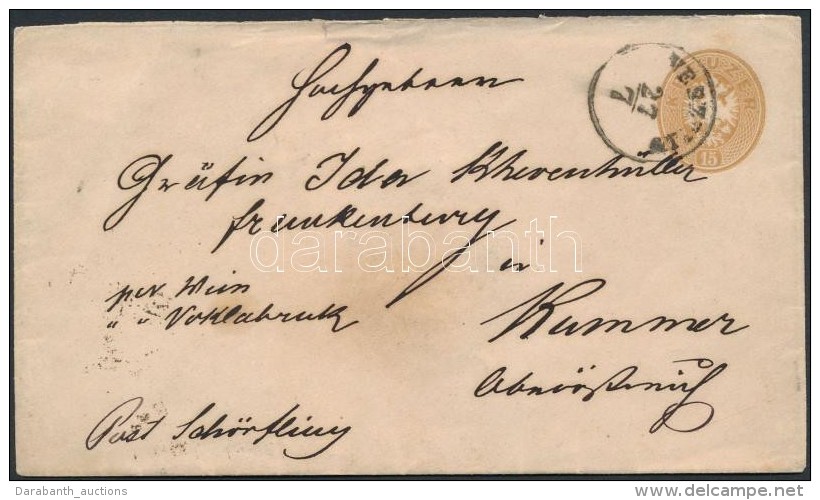 Hochgeboren
Gräfin Ida Khevenhüller
Frankenburg
in
per Wien
" " Voklabruk
Kammer
Oberöstreich
Post Schörfling
27
7
KREUZER
15
darabanth
Darabanth_auctions
www.delcampe.net